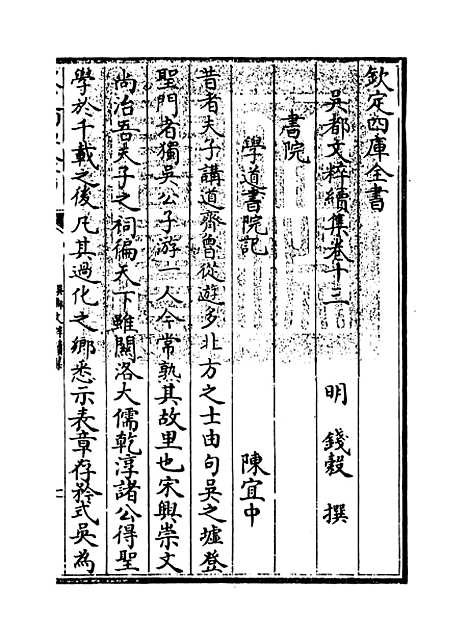 欽定四庫全書
吳都文粹續集卷十三
明 錢穀 撰
書院
學道書院記 陳宜中
昔者夫子講道齊魯從遊多北方之士由句吳之墟登
聖門者獨吳公子游一人今常熟其故里也宋興崇文
尚治吾夫子之祠徧天下雖關洛大儒乾淳諸公得聖
學於千載之後凡其過化之鄉悉示表章存矜式吳為